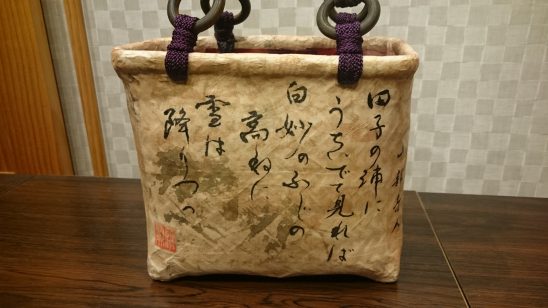 山部赤人
田子の浦に
うちいでて見れば
白妙のふじの
高ねに
雪は
降りつつ